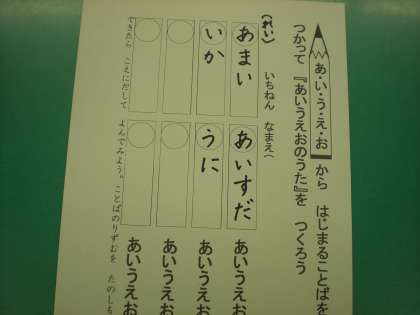 あ・い・う・え・お から はじまることばを
つかって 『あいうえおのうた』を つくろう
いちねん なまえ(
(れい)
あまい あいすだ あいうえお
いか うに あいうえお
あいうえお
あいうえお
できたら こえにだして よんでみよう。ことばのりずむを たのしも